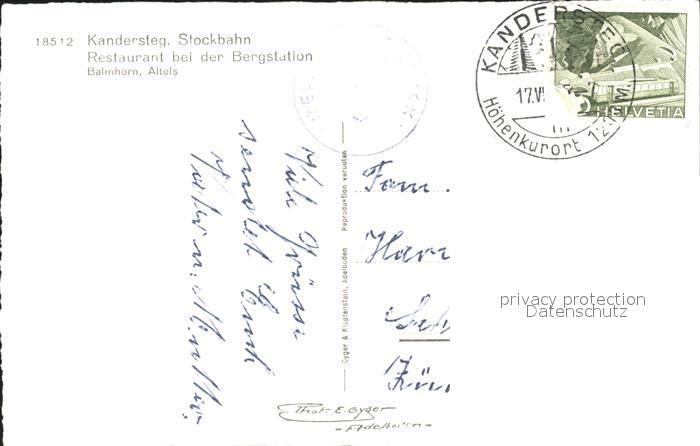 18512 Kandersteg. Stockbahn
Restaurant bei der Bergstation
Balmhorn, Altels
KANDERSTEG
17.VI
Höhenkurort 1200 M.
HELVETIA
Viele Grüsse
sendet Euch
Vater u. Mutter
Gyger & Klopfenstein, Adelboden Reproduktion verboten
Fam.
Phot. E. Gyger
- Adelboden -
privacy protection
Datenschutz